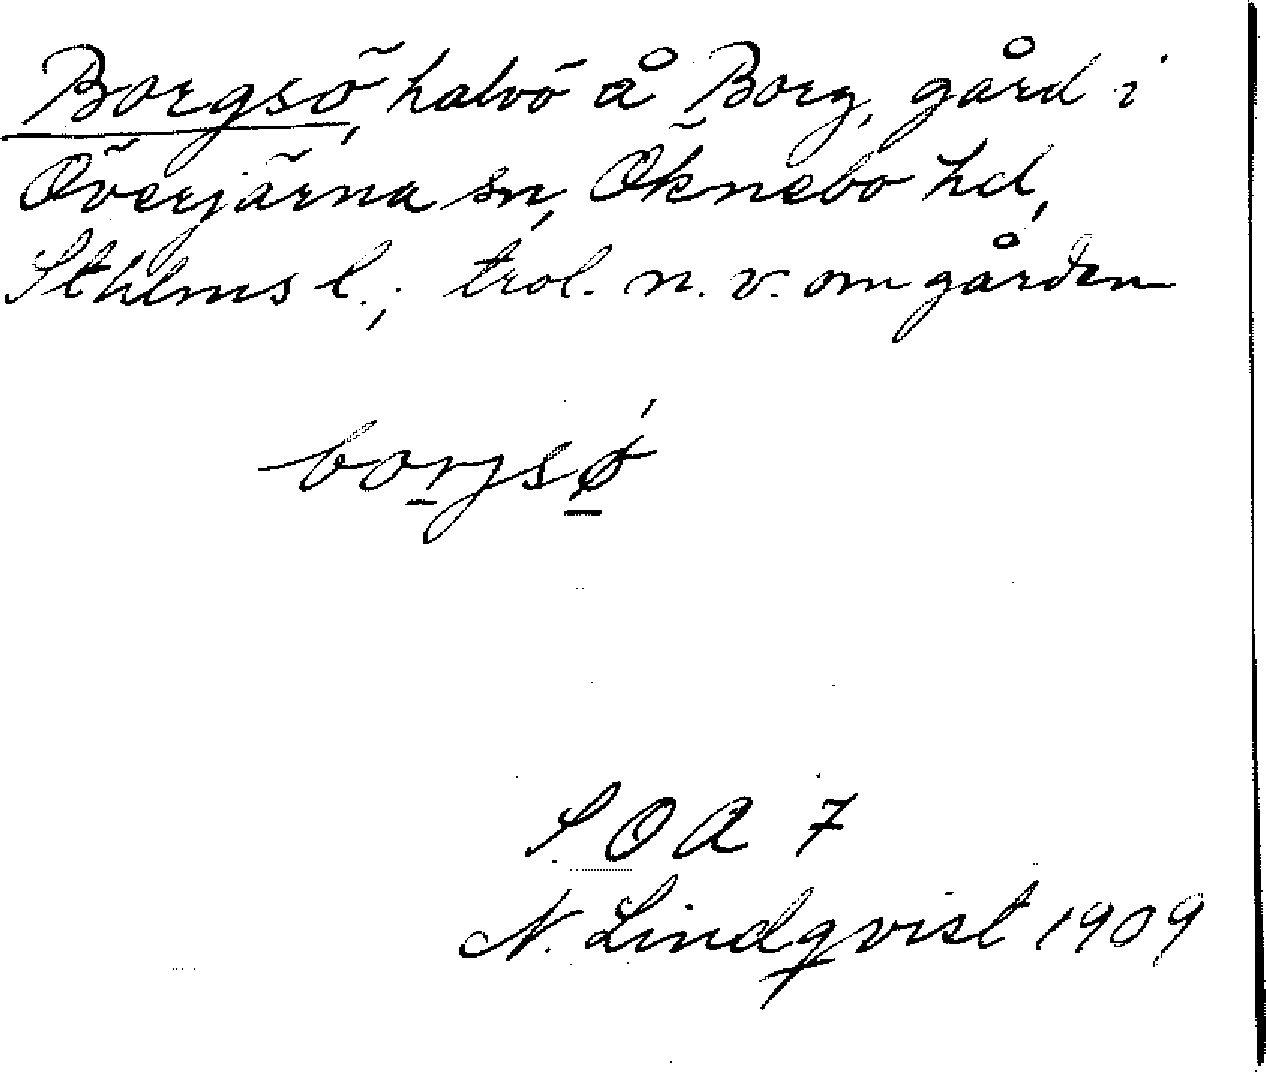 Borgsö, halvö å Borg, gård i
Överjärna sn, Öknebo hd,
Sthlms l.; trol. n. v. om gården
borjsø´
S O A 7
N. Lindqvist 1909